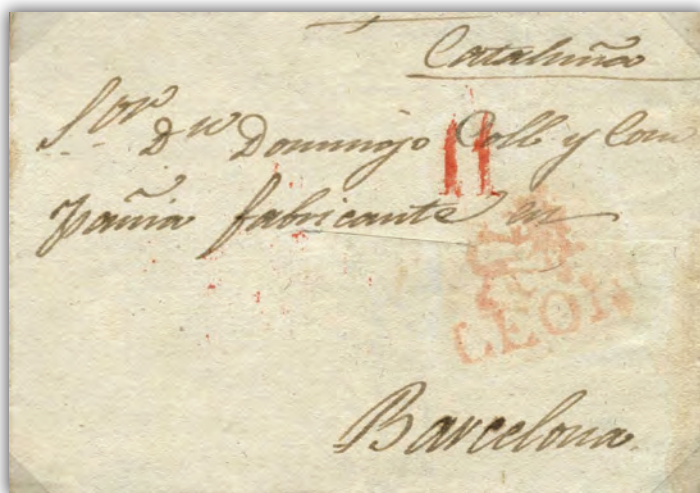 Cataluña
S.ᵒʳ Dⁿ Domingo Coll y Com
pañia fabricante en
11
LEON
Barcelona